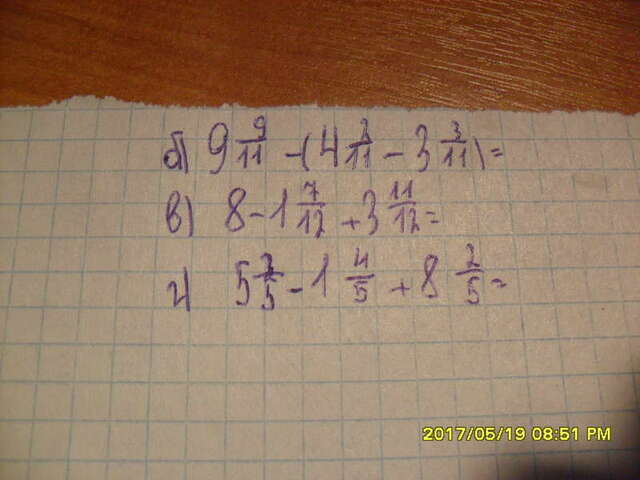 б) 9 9/11 - (4 2/11 - 3 3/11) =
в) 8 - 1 7/12 + 3 11/12 =
г) 5 2/5 - 1 4/5 + 8 2/5 =
2017/05/19 08:51 PM